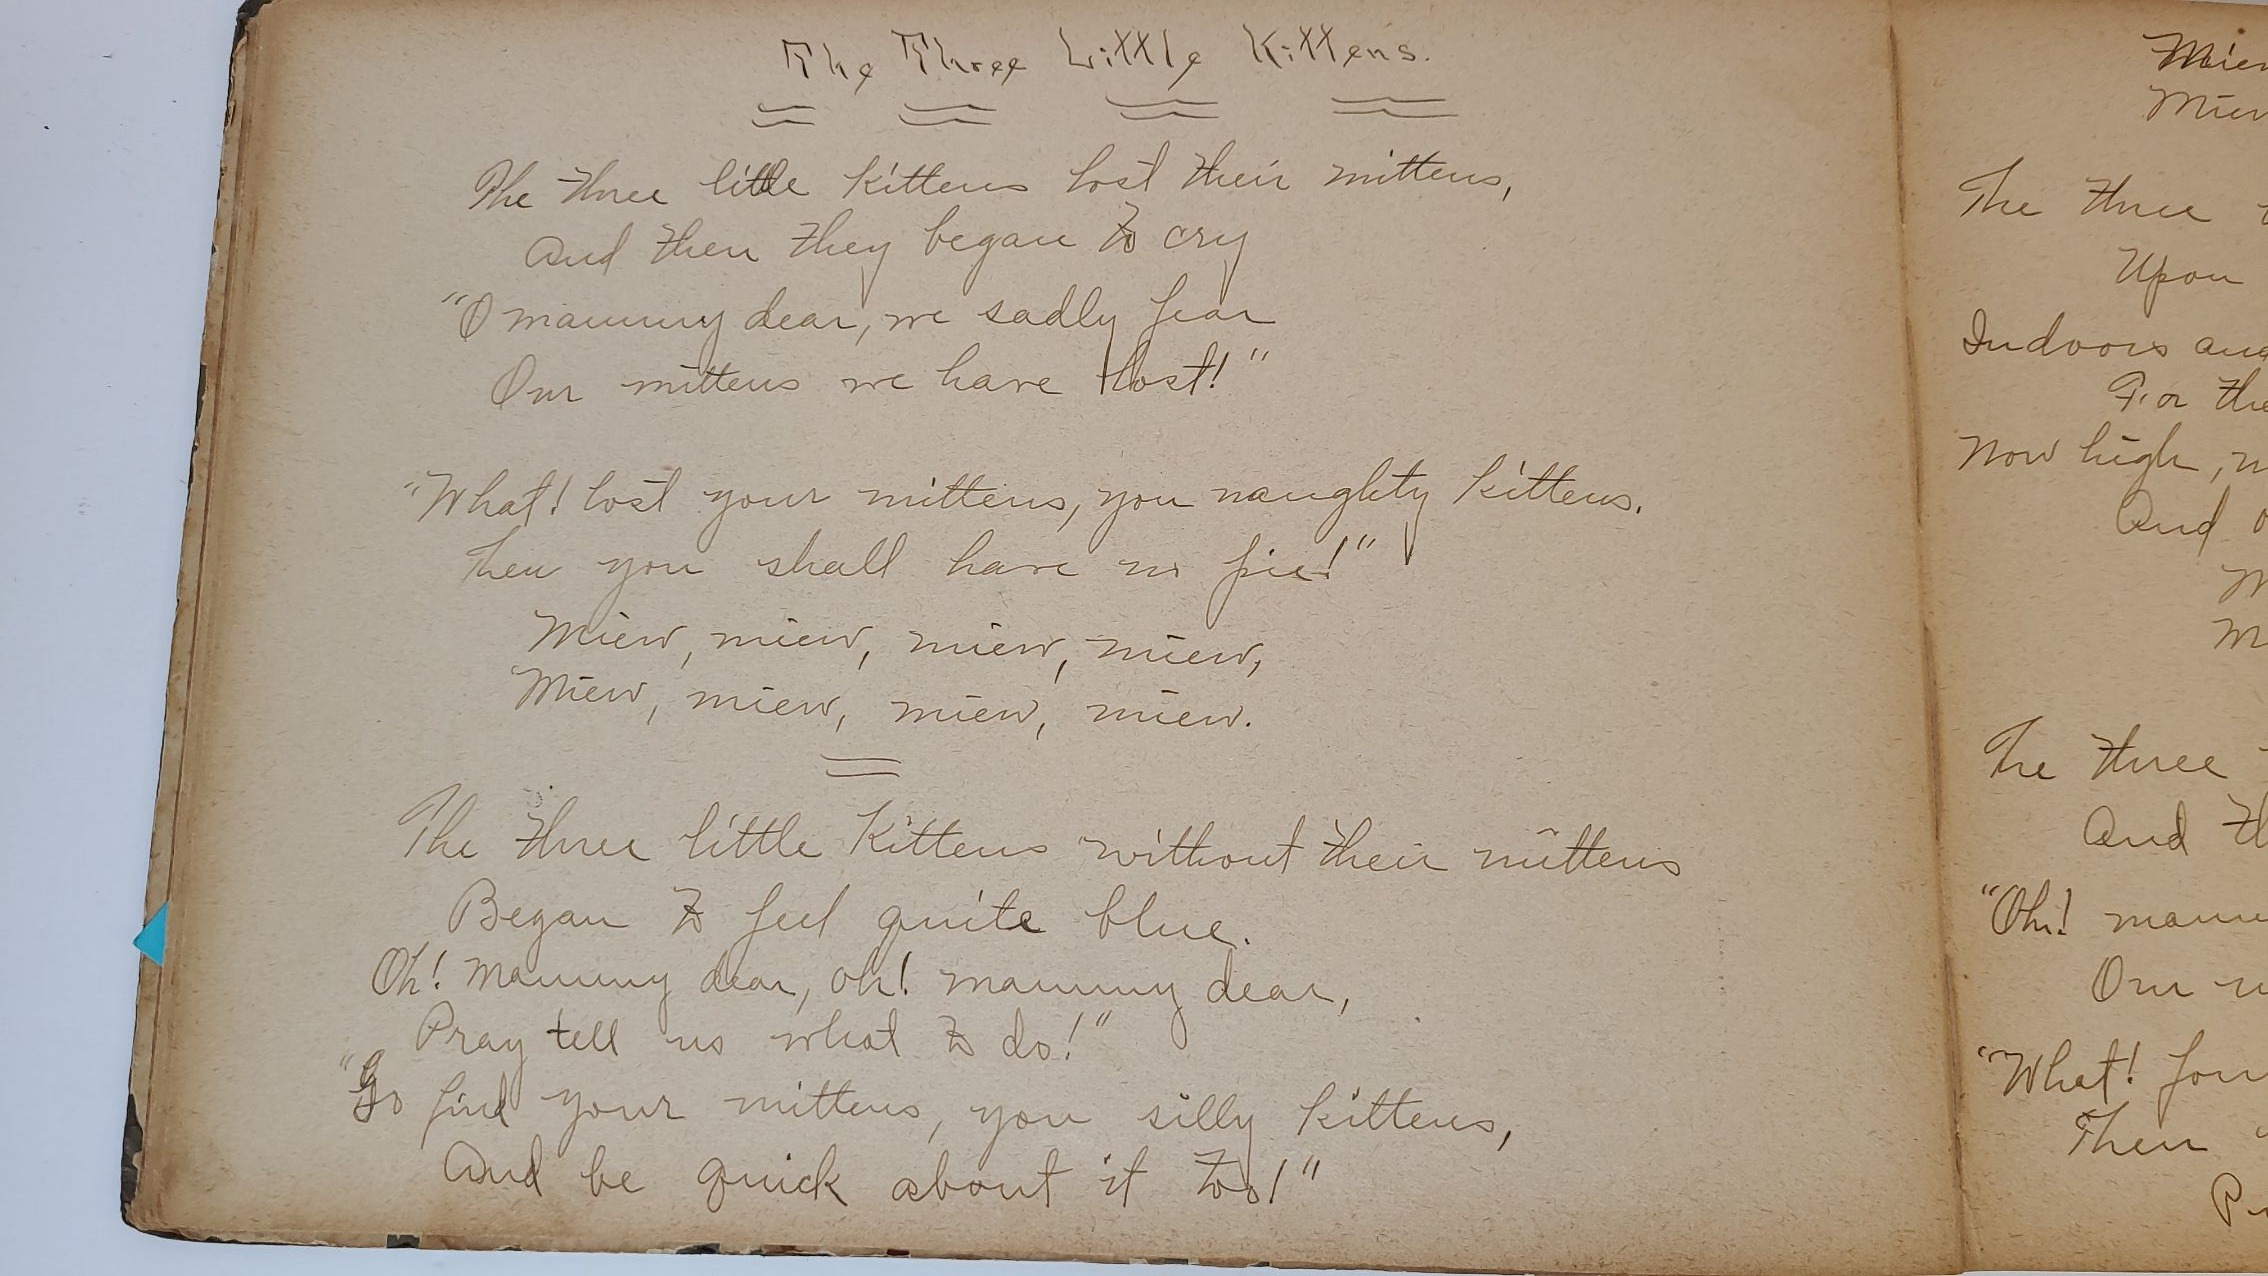 The Three Little Kittens.
The three little kittens lost their mittens,
And then they began to cry
"O mammy dear, we sadly fear
Our mittens we have lost!"
"What! lost your mittens, you naughty kittens.
Then you shall have no pie!"
Miew, miew, miew, miew,
Miew, miew, miew, miew.
The three little Kittens without their mittens
Began to feel quite blue.
Oh! Mammy dear, oh! mammy dear,
Pray tell us what to do!"
"Go find your mittens, you silly kittens,
And be quick about it too!"
Miew
The three
Upon
Indoors
For the
Now high,
And
The three
And
"Oh!
Our
"What!
Then